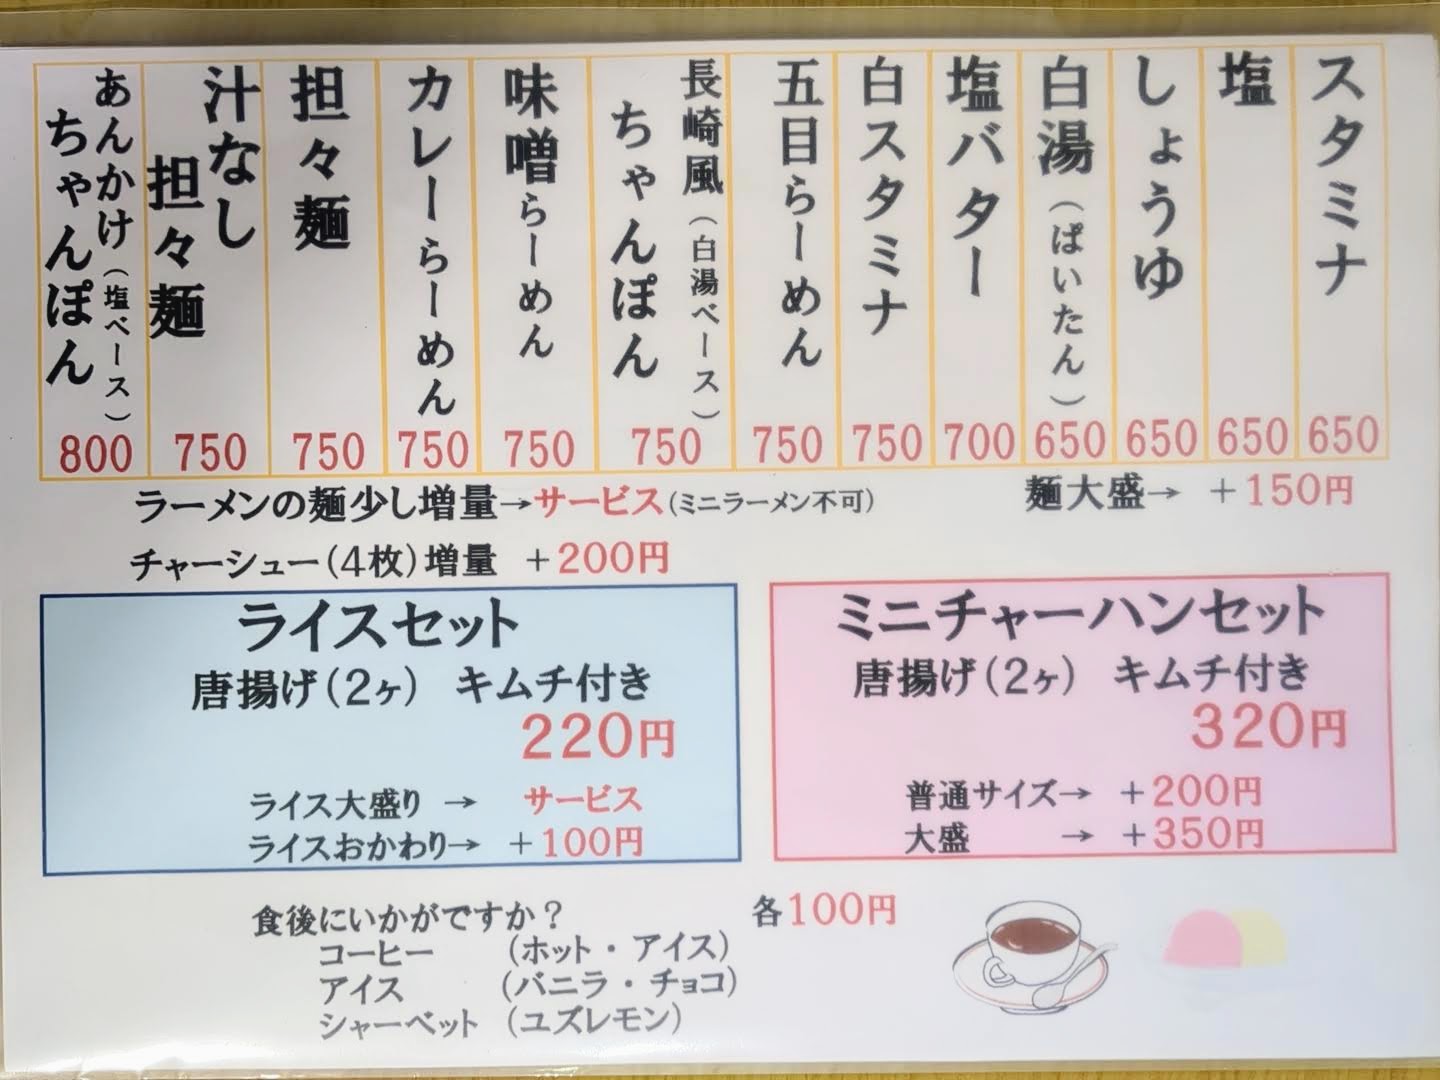 スタミナ 650
塩 650
しょうゆ 650
白湯(ぱいたん) 650
塩バター 700
白スタミナ 750
五目らーめん 750
長崎風(白湯ベース)
ちゃんぽん 750
味噌らーめん 750
カレーらーめん 750
担々麺 750
汁なし
担々麺 750
あんかけ(塩ベース)
ちゃんぽん 800
ラーメンの麺少し増量→サービス(ミニラーメン不可)
麺大盛→ +150円
チャーシュー(4枚)増量 +200円
ライスセット
唐揚げ(2ヶ) キムチ付き
220円
ライス大盛り → サービス
ライスおかわり→ +100円
ミニチャーハンセット
唐揚げ(2ヶ) キムチ付き
320円
普通サイズ→ +200円
大盛 → +350円
食後にいかがですか? 各100円
コーヒー (ホット・アイス)
アイス (バニラ・チョコ)
シャーベット (ユズレモン)